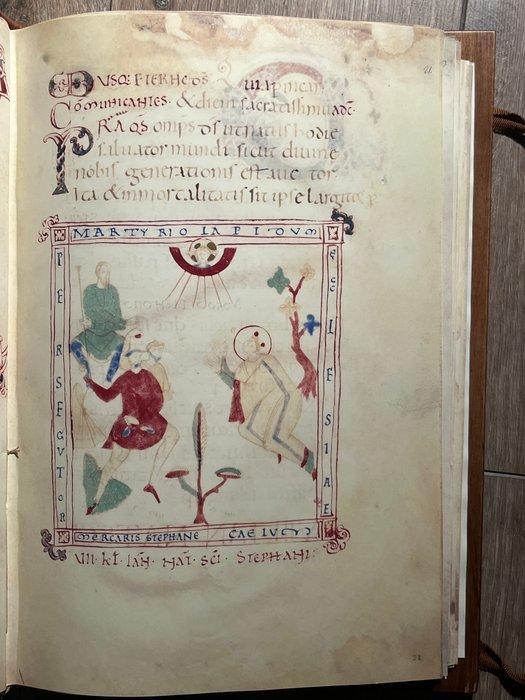 Communicantes. & diem sacratissimu
PRA qs omps ds ut natus hodie
saluator mundi sicut diuine
nobis generationis est auctor
ita & inmortalitatis sit ipse largitor
MARTYRIO LAPIDUM
PERSEGUTOR
ECLESIAE
MERCARIS STEPHANE CAELUM
VII KL IAN NAT SCI STEPHANI